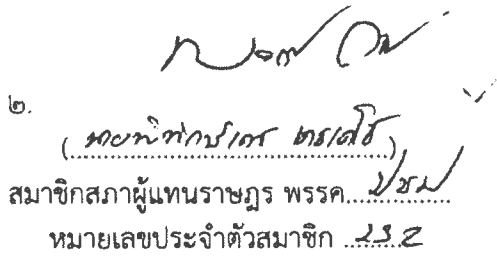 ๒.
(นายพิทักษ์เดช เดชเดโช)
สมาชิกสภาผู้แทนราษฎร พรรค ปชป
หมายเลขประจำตัวสมาชิก 232